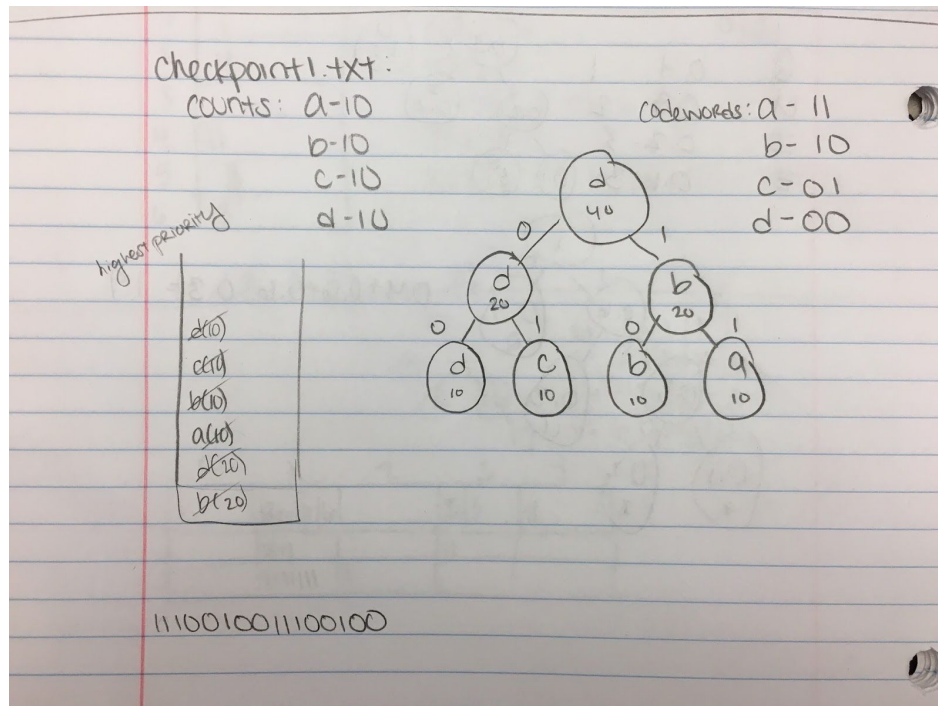 checkpoint1.txt:
counts: a-10
b-10
c-10
d-10
codewords: a - 11
b- 10
c-01
d-00
highest priority
d(10)
c(10)
b(10)
a(10)
d(20)
b(20)
d
40
0 1
d
20
b
20
0 1 0 1
d
10
c
10
b
10
a
10
1110010011100100